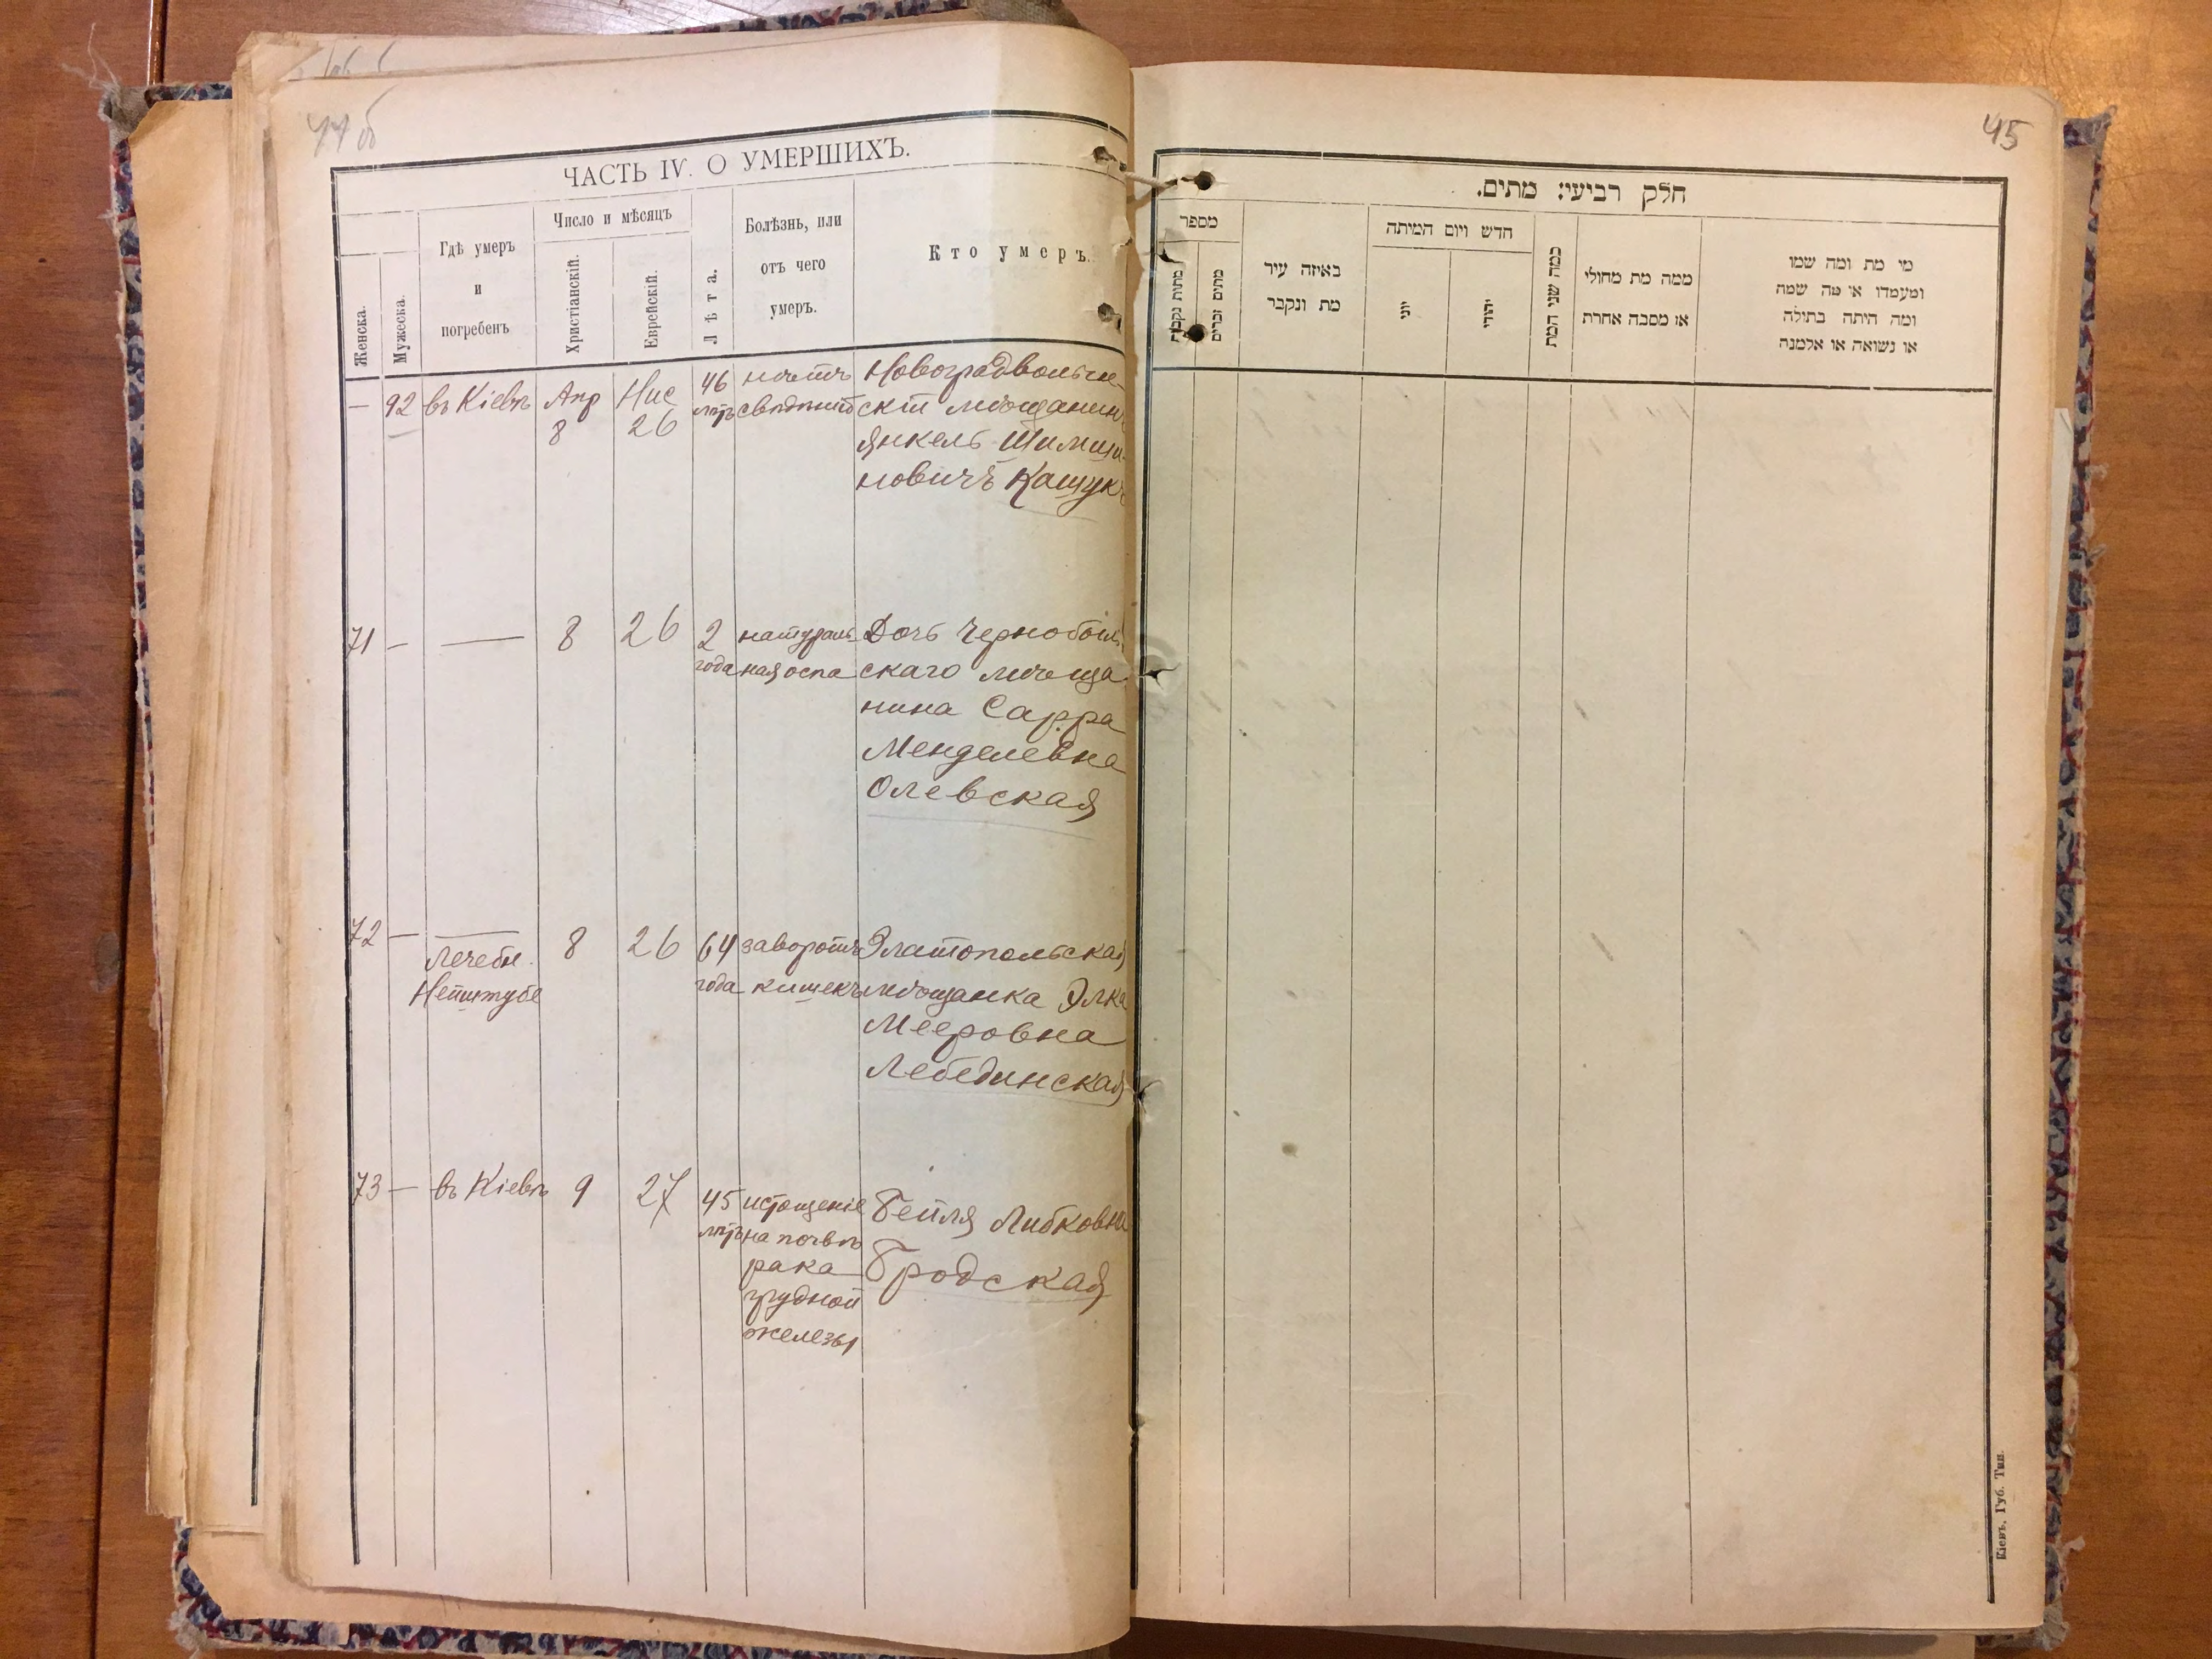 ЧАСТЬ IV. О УМЕРШИХЪ.
Женска.
Мужеска.
Гдѣ умеръ
и
погребенъ
Число и мѣсяцъ
Христіанскій.
Еврейскій.
Лѣта.
Болѣзнь, или
отъ чего
умеръ.
Кто умеръ.
— 92 въ Кіевѣ Апр 8 Нис 26 46 лѣтъ
нѣтъ
свѣдѣній
Новоградволын-
скій мѣщанинъ
Янкель Шимши-
новичъ Кащукъ
71 — — 8 26 2 года
натураль
ная оспа
Дочь Чернобыль
скаго мѣща
нина Сарра
Менделевна
Олевская
72 — —
Лечебн.
8 26 64 года
заворотъ
кишекъ
Златопольская
мѣщанка Элка
Мееровна
Лебединская
73 — въ Кіевѣ 9 27 45 лѣтъ
истощеніе
на почвѣ
рака
грудной
железы
Бейля Либковна
Бродская
45
חלק רביעי: מתים.
מספר
מתות נקבות
מתים זכרים
באיזה עיר
מת ונקבר
חדש ויום המיתה
יוני
יהודי
כמה שני המת
ממה מת מחולי
או מסבה אחרת
מי מת ומה שמו
ומעמדו או מה שמה
ומה היתה בתולה
או נשואה או אלמנה
Кіевъ, Губ. Тип.